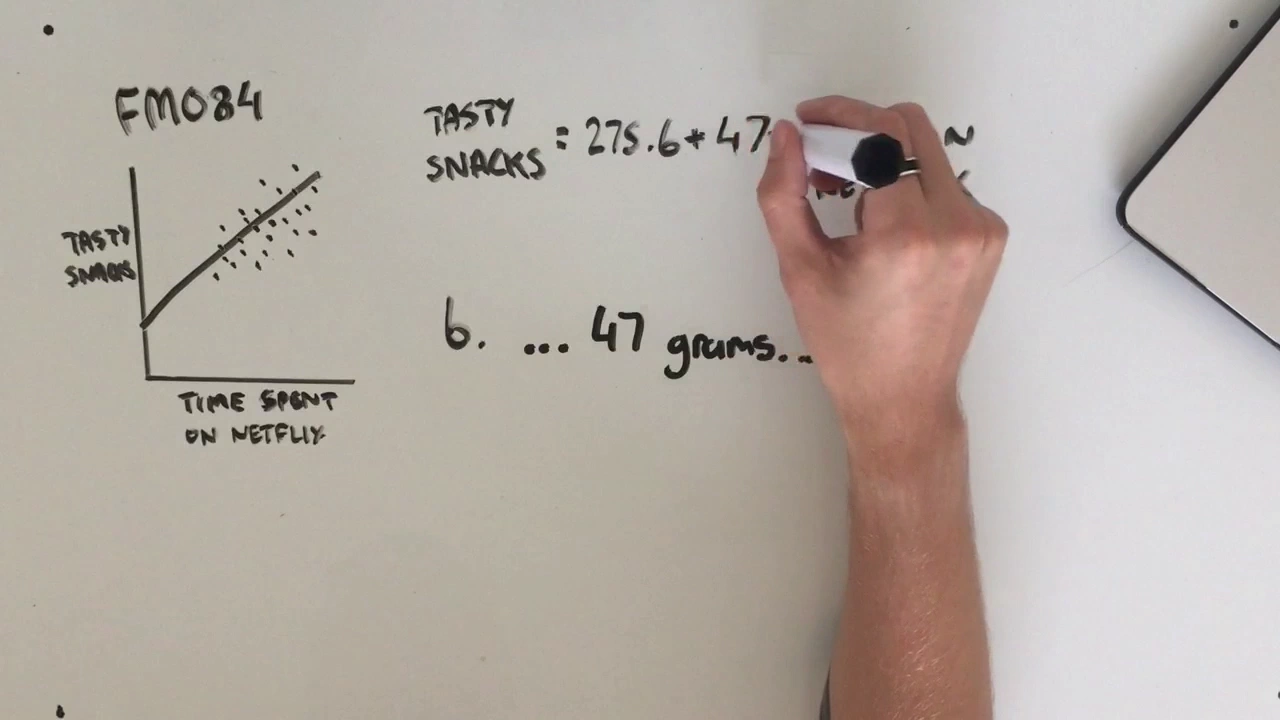 FM084
TASTY
SNACKS
TIME SPENT
ON NETFLIX
TASTY
SNACKS = 275.6 + 47
6. ... 47 grams...